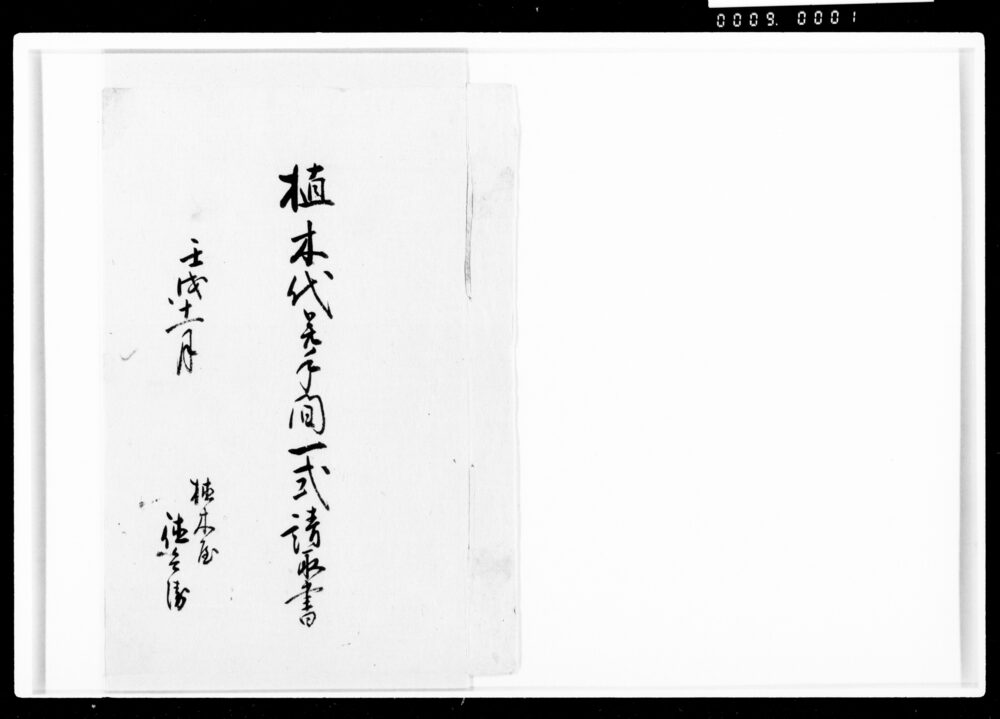 0009. 0001
植木代并手間一式請取書
壬戌十一月
植木屋
徳兵衛